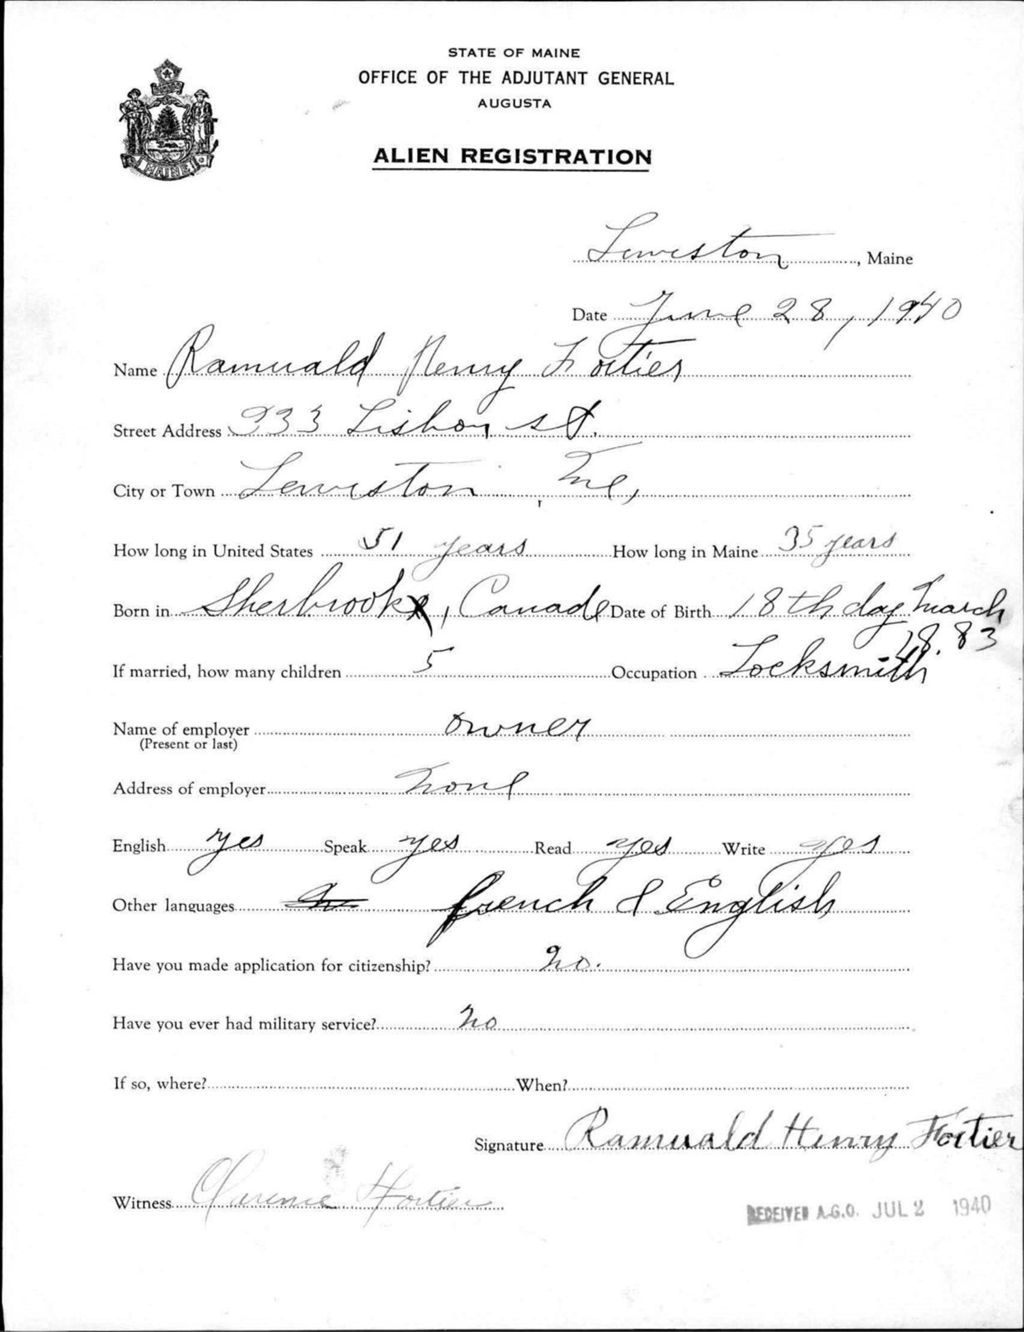 STATE OF MAINE
OFFICE OF THE ADJUTANT GENERAL
AUGUSTA
ALIEN REGISTRATION
MAINE
Lewiston, Maine
Date June 28, 1940
Name Ramuald Henry Fortier
Street Address 933 Lisbon st.
City or Town Lewiston, Me,
How long in United States 51 years How long in Maine 35 years
Born in Sherbrooke, Canade Date of Birth 18th day March
1883
If married, how many children 5 Occupation Locksmith
Name of employer owner
(Present or last)
Address of employer none
English yes Speak yes Read yes Write yes
Other languages french & English
Have you made application for citizenship? no.
Have you ever had military service? no
If so, where? When?
Signature Ramuald Henry Fortier
Witness Clarence Fortier
RECEIVED A.G.O. JUL 2 1940